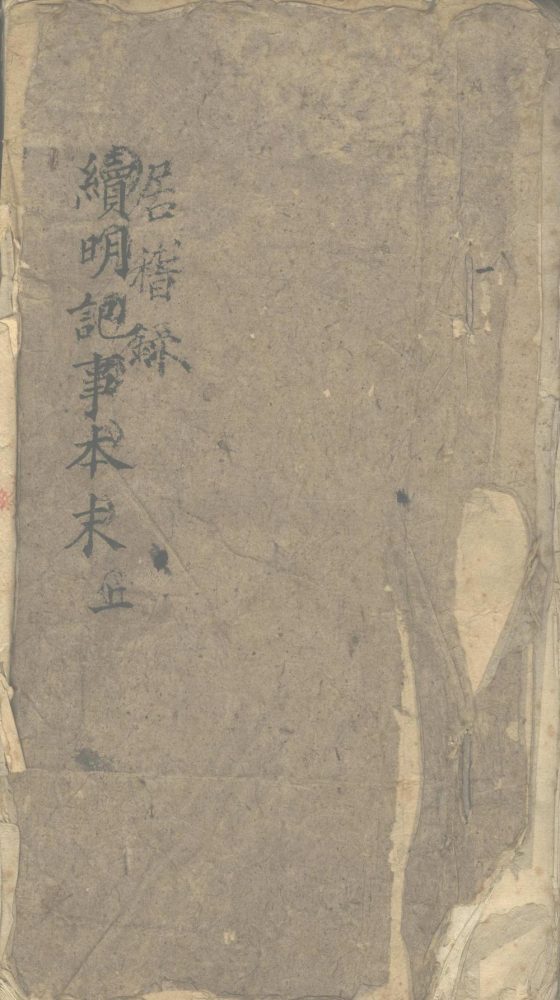 居稽錄
續明記事本末 五